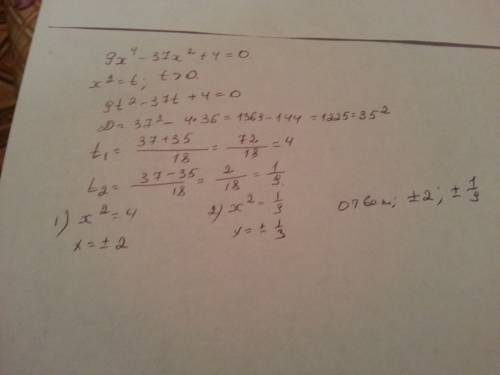 9x⁴ - 37x² + 4 = 0
x² = t; t > 0.
9t² - 37t + 4 = 0
D = 37² - 4 * 36 = 1369 - 144 = 1225 = 35²
t₁ = (37+35)/18 = 72/18 = 4
t₂ = (37-35)/18 = 2/18 = 1/9.
1) x² = 4
x = ± 2
2) x² = 1/9
x = ± 1/3
Ответ; ±2; ± 1/9